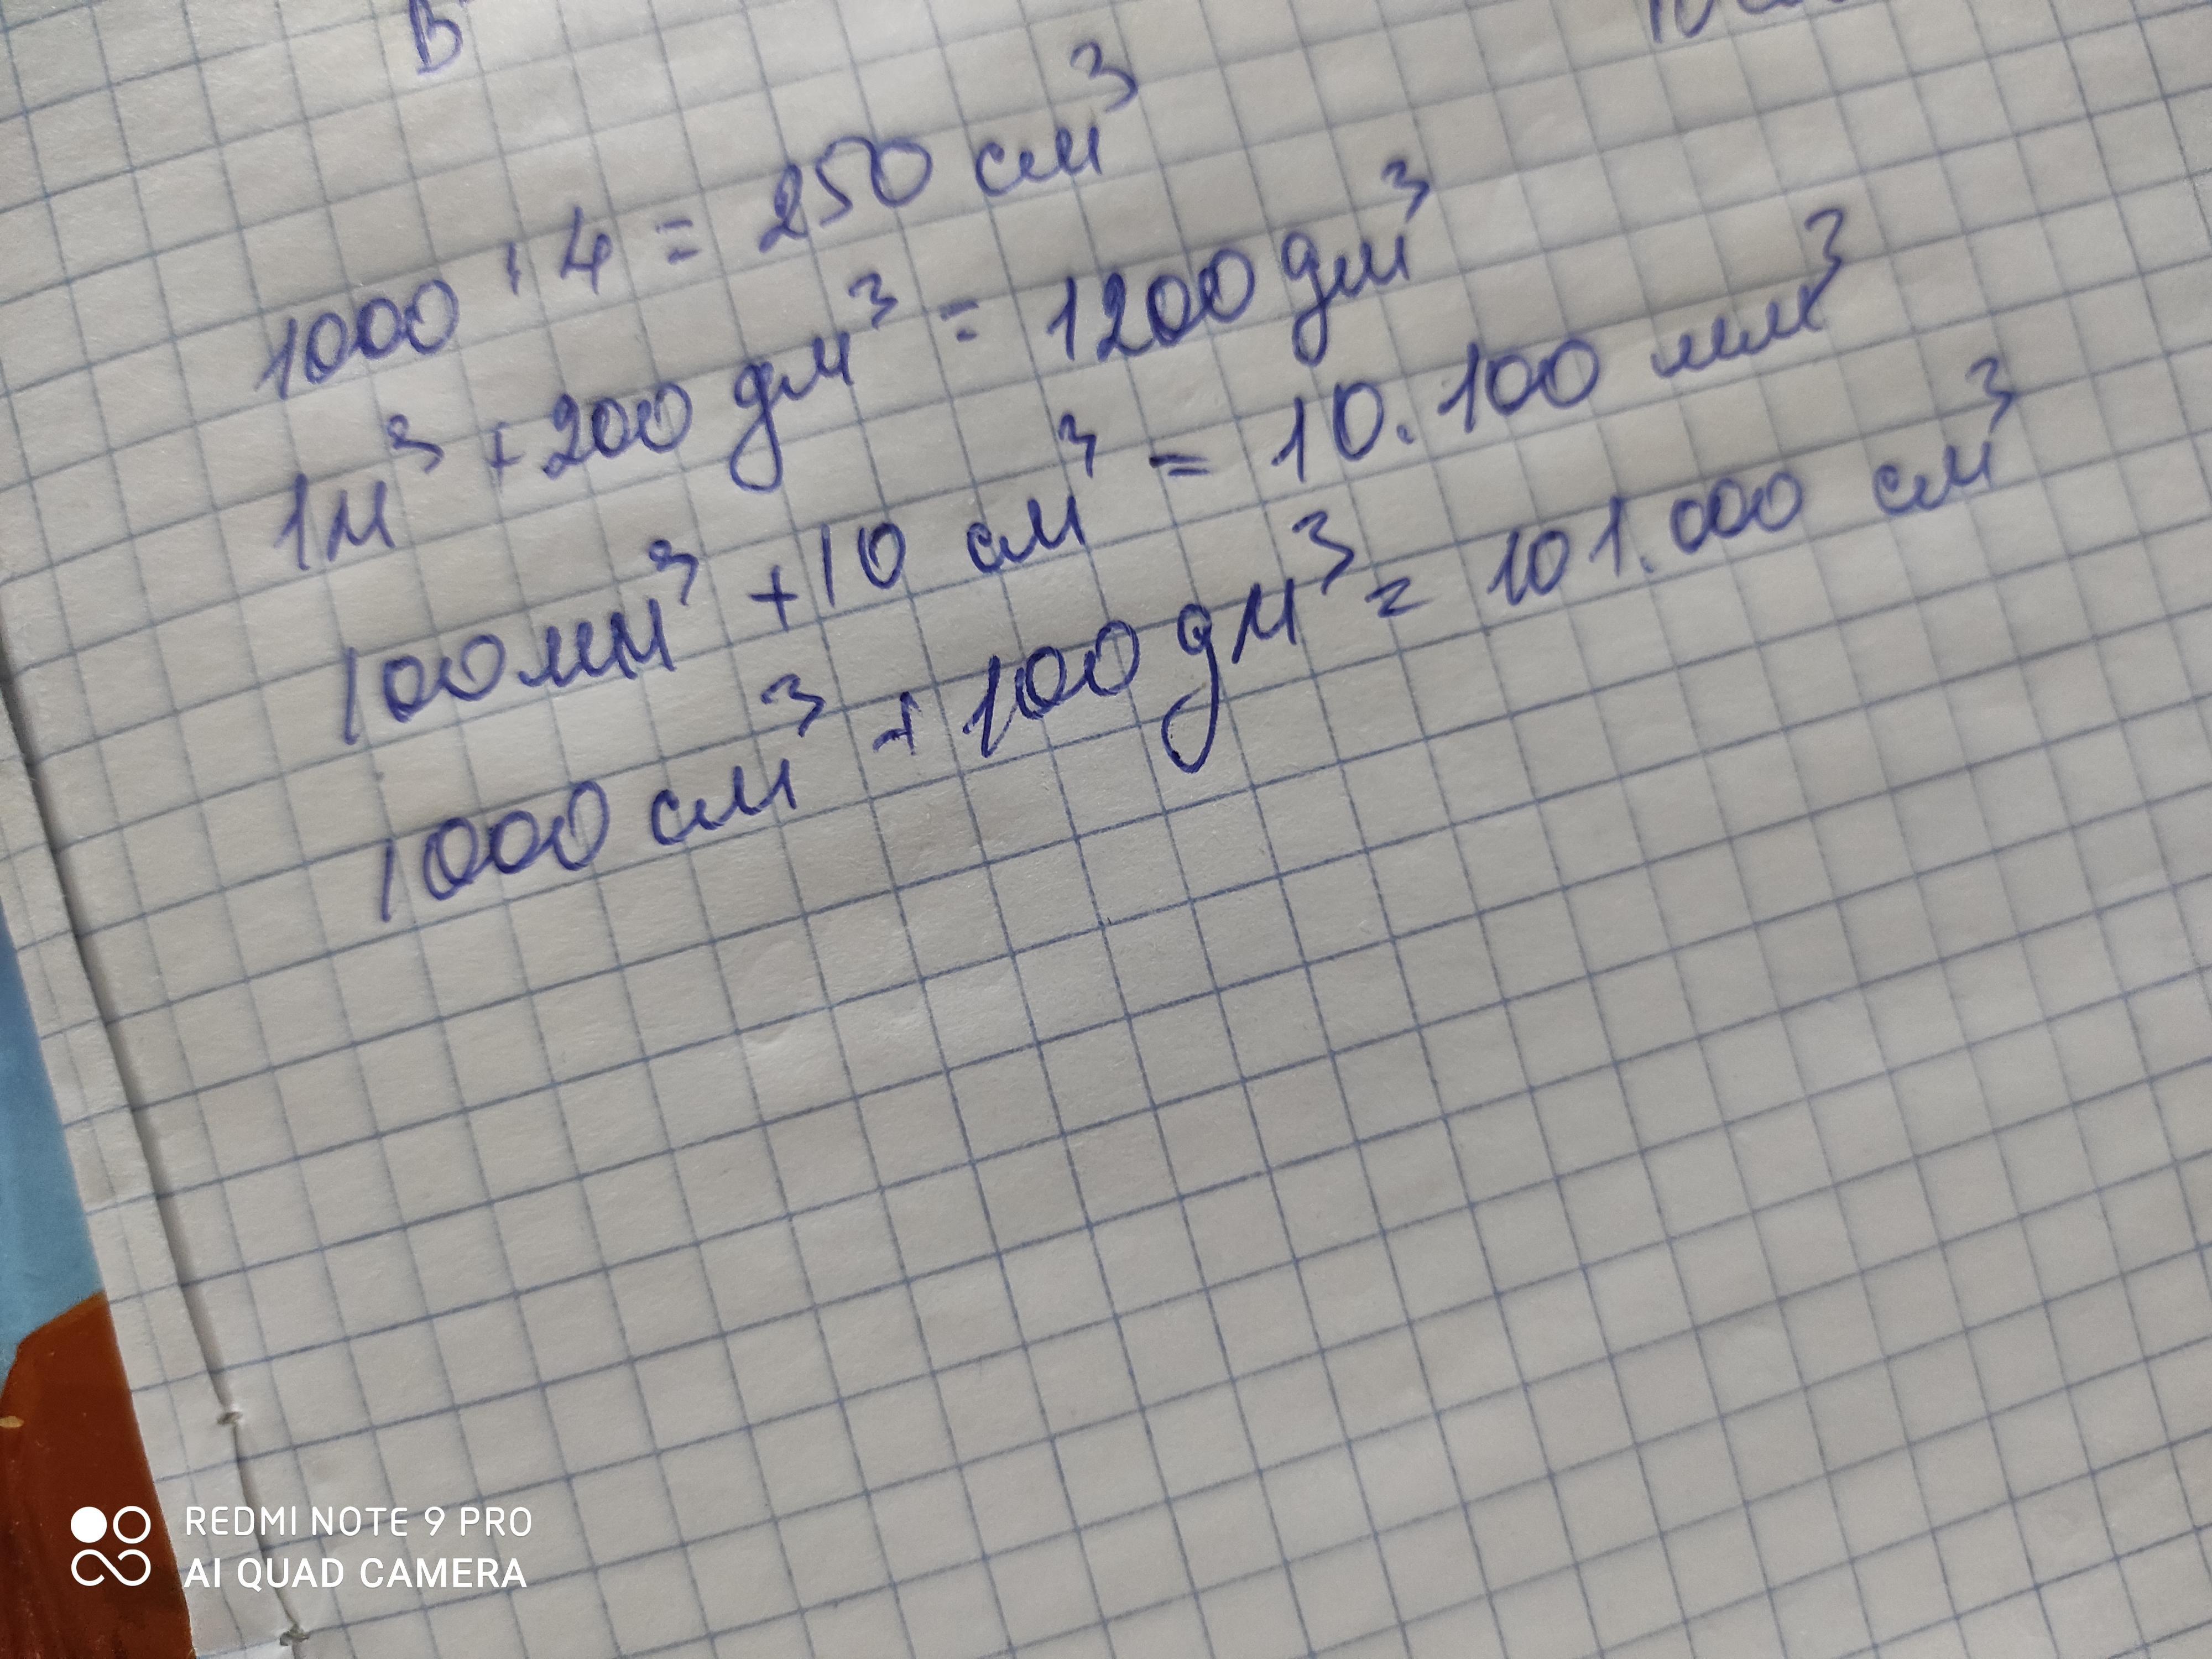 В
1000 : 4 = 250 см³
1м³ + 200 дм³ = 1200 дм³
100мм³ + 10 см³ = 10.100 мм³
1000 см³ + 100 дм³ = 101.000 см³
REDMI NOTE 9 PRO
AI QUAD CAMERA